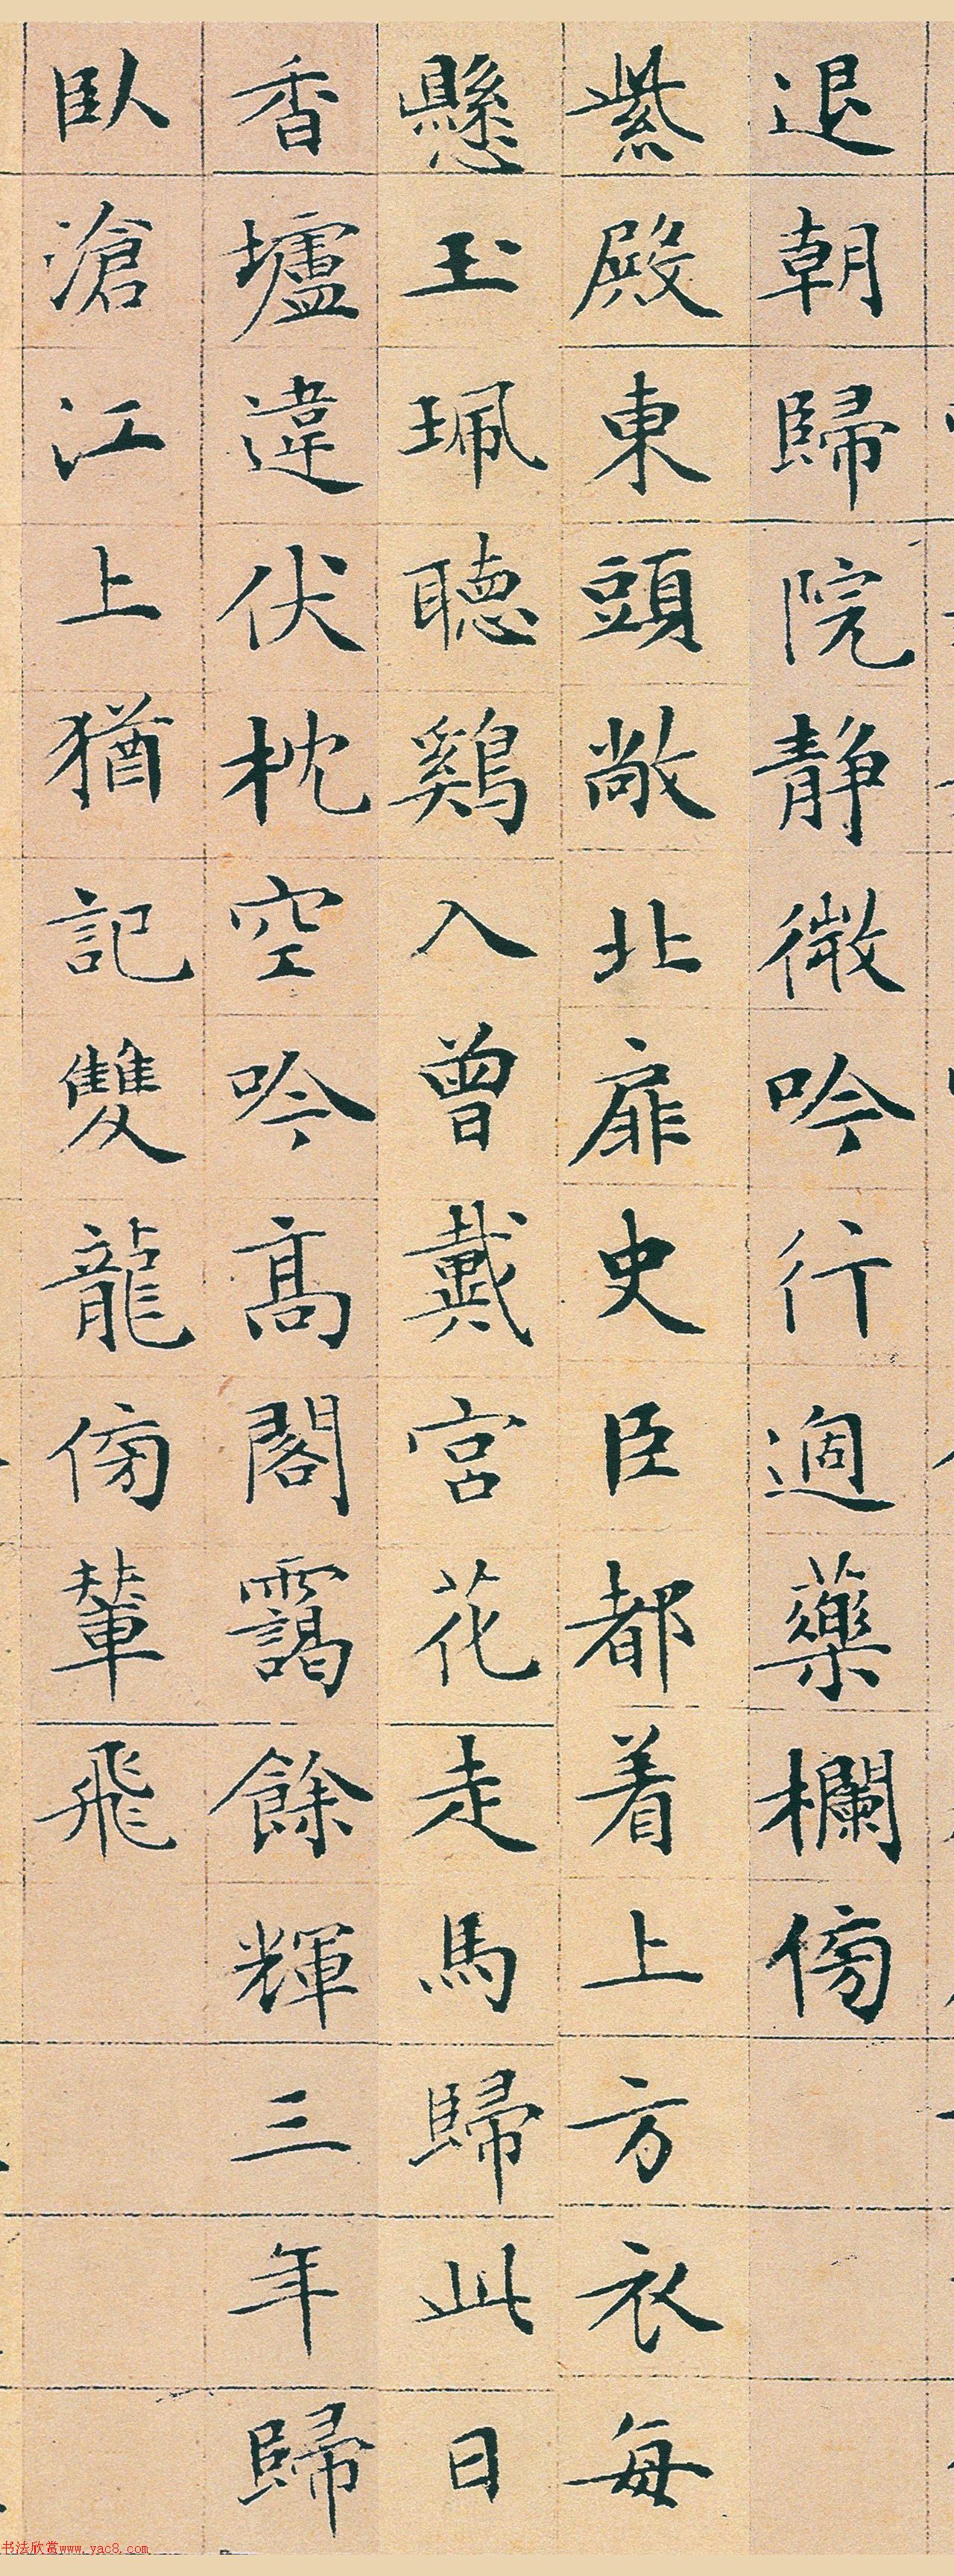 退朝歸院靜微吟行遶藥欄傍
紫殿東頭敞北扉史臣都着上方衣每
懸玉珮聽鷄入曾戴宮花走馬歸此日
香壚違伏枕空吟高閣靄餘輝三年歸
臥滄江上猶記雙龍傍輦飛
书法欣赏www.yac8.com